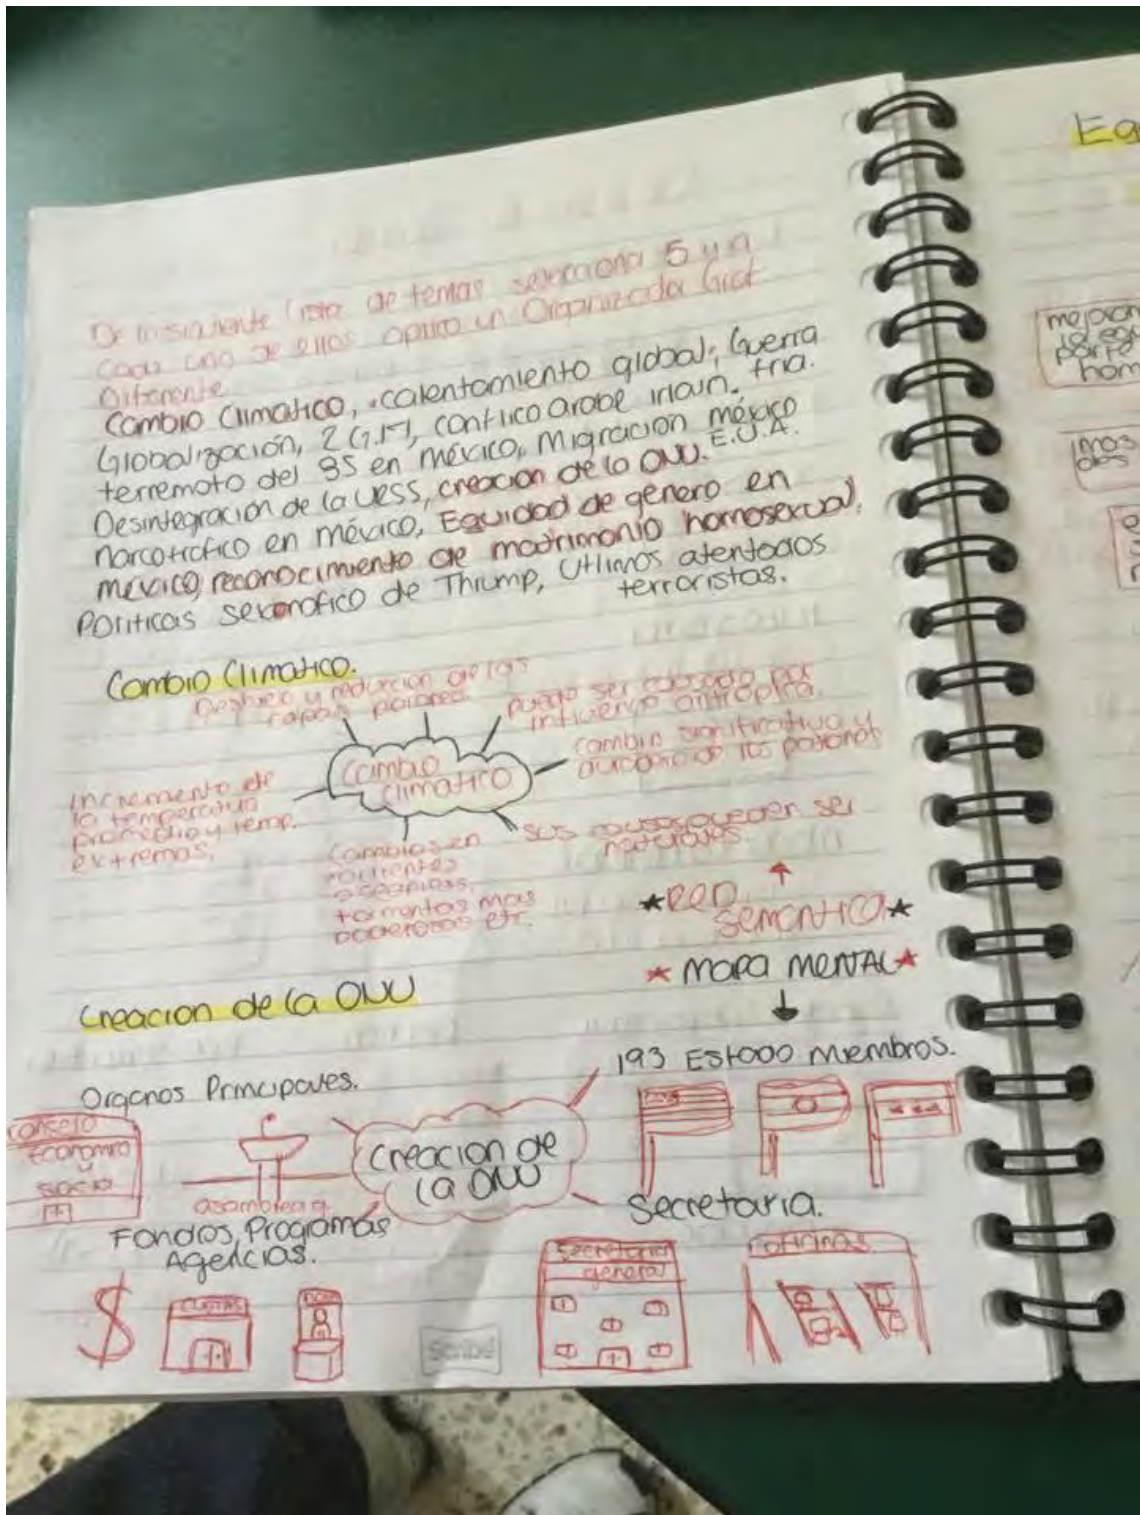 De la siguiente lista de temas selecciona 5 y a
cada uno de ellos aplica un Organizador Graf
Diferente
Cambio Climatico, calentamiento global, Guerra
fria.
Globalización, 2 G.M, conflico arabe
terremoto del 85 en méxico, Migracion méxico
E.U.A.
Desintegración de la URSS, creacion de la ONU.
narcotrafico en méxico, Equidad de género en
méxico, reconocimiento de matrimonio homosexual,
Politicas de Thrump, Utlimos atentados
terroristas.
Cambio Climatico.
Deshielo y reduccion de las
capas polares.
puede ser causado por
influencia antropica.
cambio significativo y
de los patrones
Cambio
climatico
Incremento de
la temperatura
promedio y temp.
extremas,
Cambios en
corrientes
oceanicas,
tormentas mas
poderosas etc.
sus causas pueden ser
naturales.
RED
SEMANTICA
MAPA MENTAL
Creacion de la ONU
193 Estado Miembros.
Organos Principales.
Consejo
Economico
y
social
asamblea g.
Creacion de
la ONU
Secretaria.
Fondos, Programas
Agencias.
Secretaria
general
oficinas
scribe
Eq
mejoran
hom